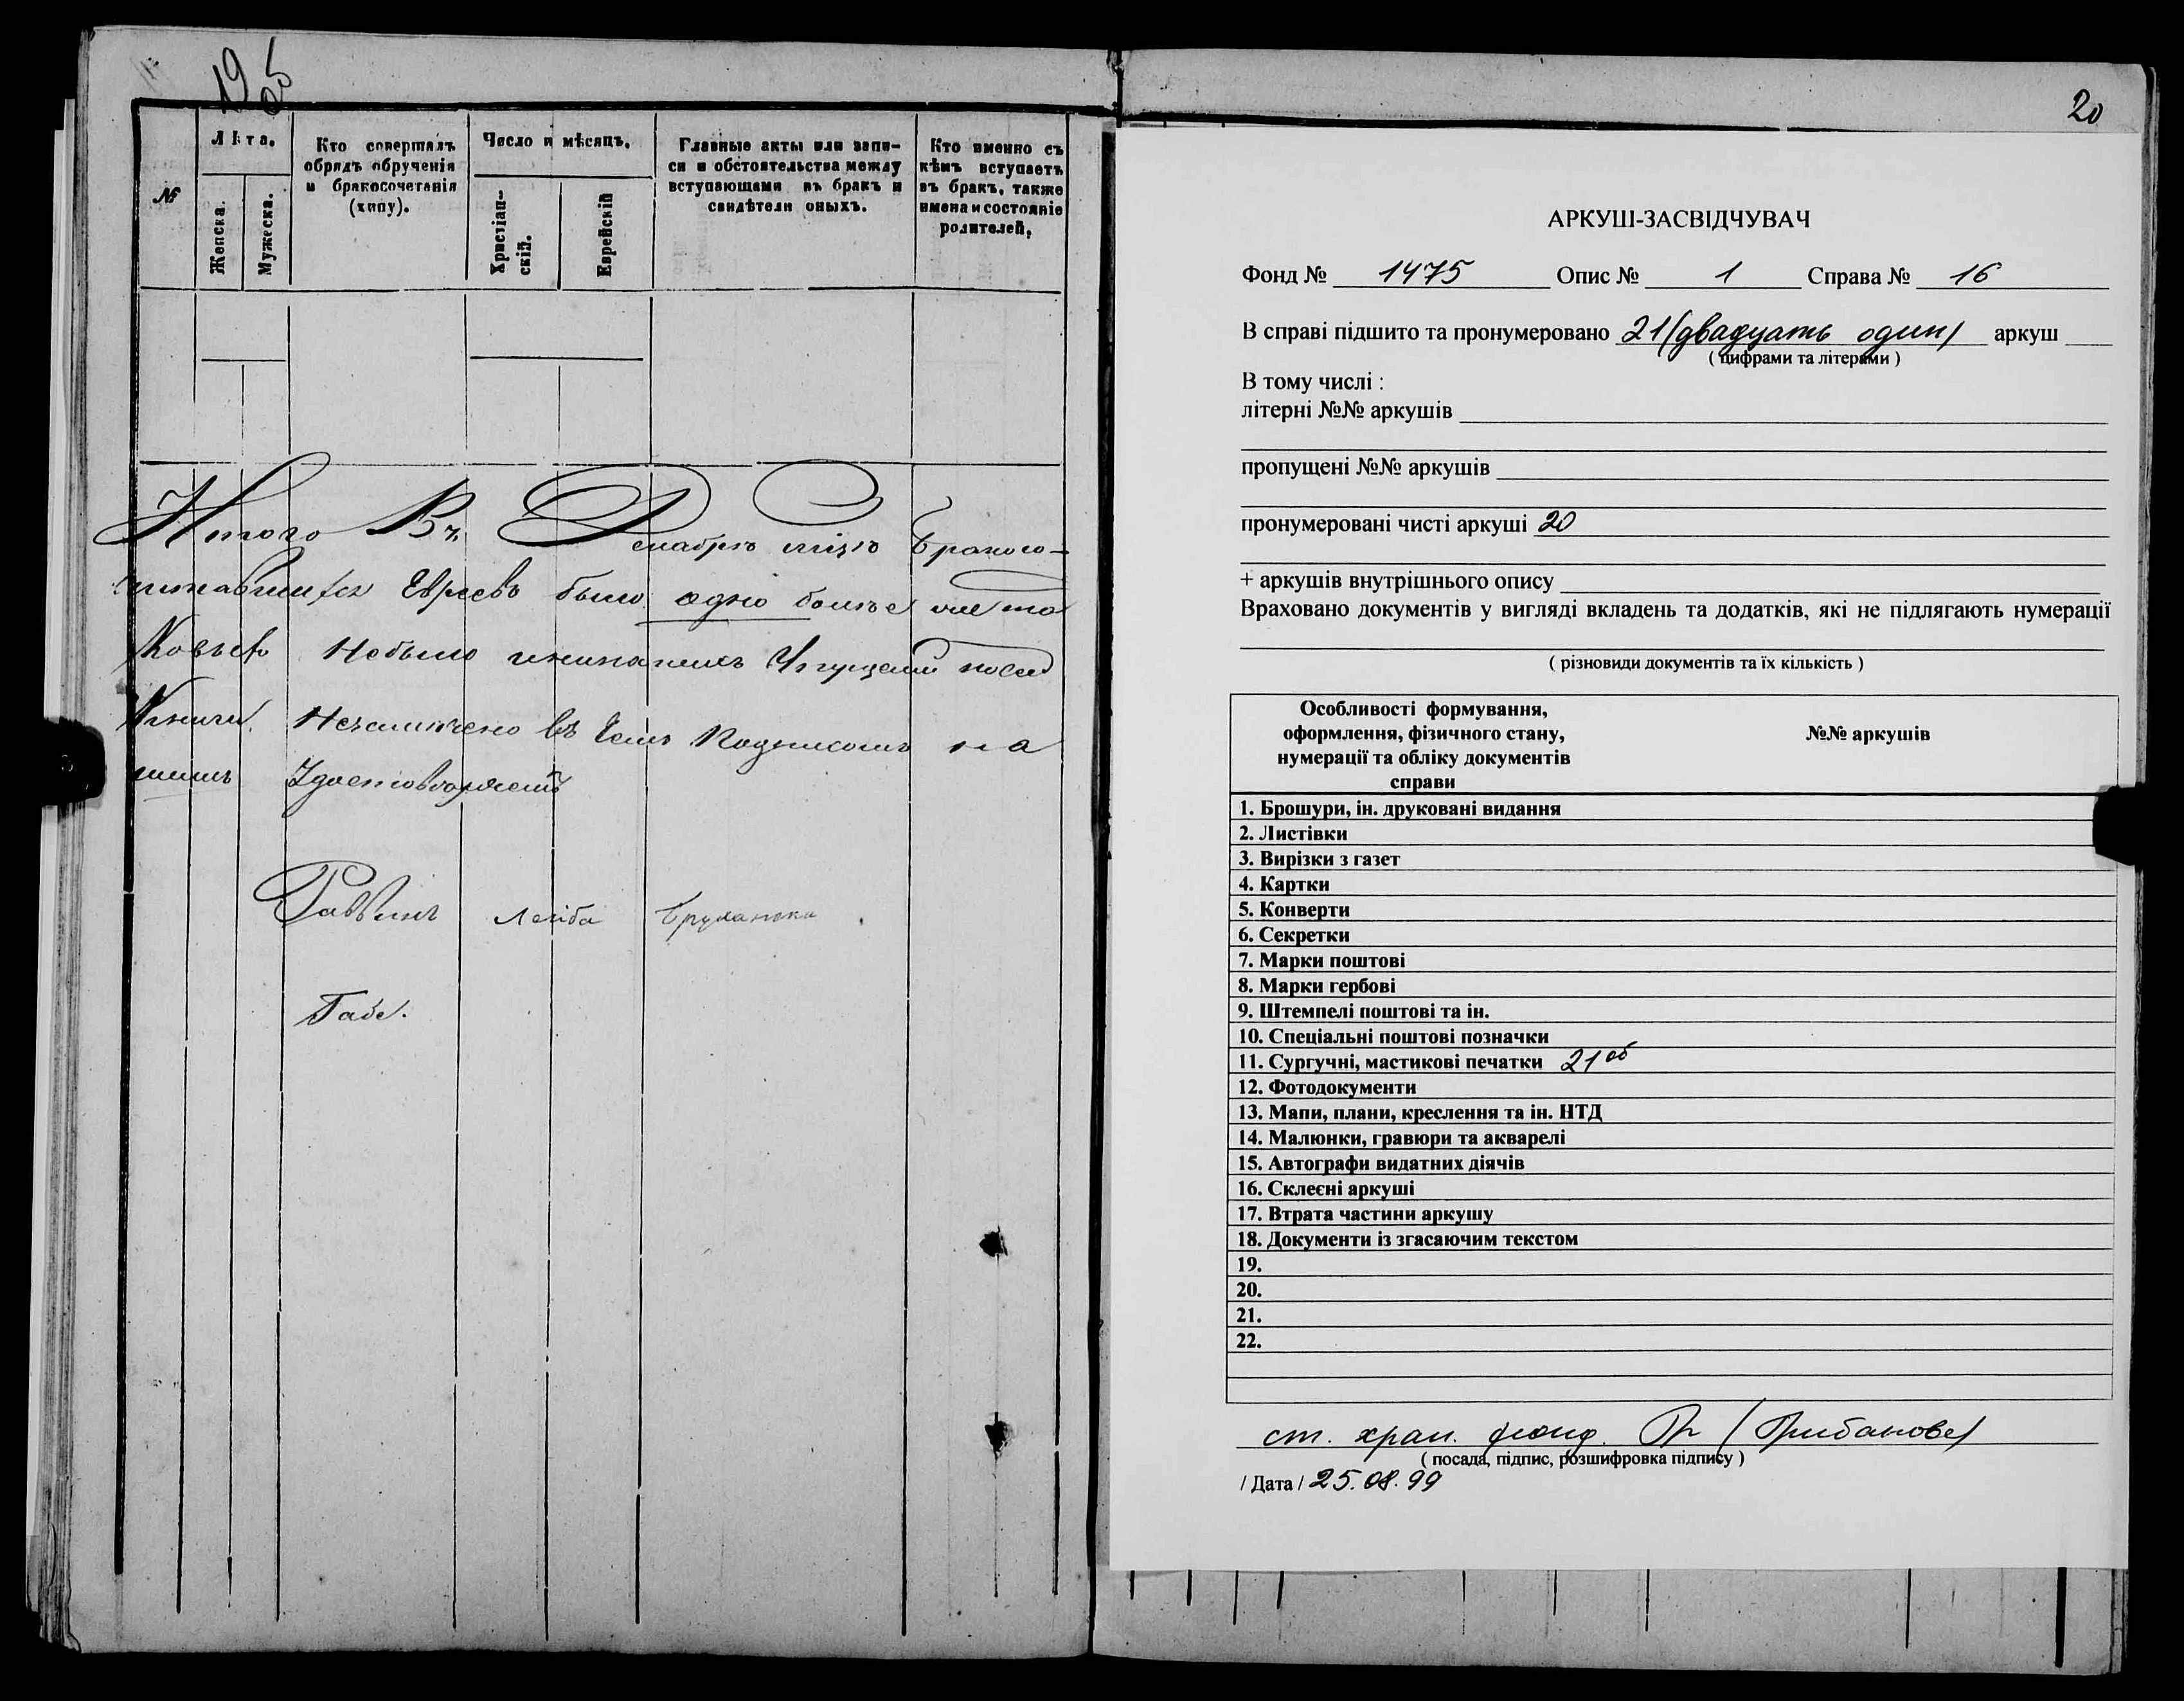 19
об
№
Лѣта.
Женска.
Мужеска.
Кто совершалъ
обрядъ обрученія
и бракосочетанія
(хупу).
Число и мѣсяцъ.
Христіан-
скій.
Еврейскій
Главные акты или запи-
си и обстоятельства между
вступающими въ бракъ и
свидѣтели оныхъ.
Кто именно съ
кѣмъ вступаетъ
въ бракъ, также
имена и состояніе
родителей,
Итого Въ Декабрѣ мѣзцѣ Бракосо-
Евреевъ было одно болѣе
Небыло
Книги Незамѣчено въ Чемъ Подписомъ на
шимъ
Раввинъ Лейба
Габе.
20
АРКУШ-ЗАСВІДЧУВАЧ
Фонд № 1475 Опис № 1 Справа № 16
В справі підшито та пронумеровано 21 (двадцать один) аркуш
( цифрами та літерами )
В тому числі :
літерні №№ аркушів
пропущені №№ аркушів
пронумеровані чисті аркуші 20
+ аркушів внутрішнього опису
Враховано документів у вигляді вкладень та додатків, які не підлягають нумерації
( різновиди документів та їх кількість )
Особливості формування,
оформлення, фізичного стану,
нумерації та обліку документів
справи
№№ аркушів
1. Брошури, ін. друковані видання
2. Листівки
3. Вирізки з газет
4. Картки
5. Конверти
6. Секретки
7. Марки поштові
8. Марки гербові
9. Штемпелі поштові та ін.
10. Спеціальні поштові позначки
11. Сургучні, мастикові печатки 21 об
12. Фотодокументи
13. Мапи, плани, креслення та ін. НТД
14. Малюнки, гравюри та акварелі
15. Автографи видатних діячів
16. Склеєні аркуші
17. Втрата частини аркушу
18. Документи із згасаючим текстом
19.
20.
21.
22.
ст. хран. фонд.
( посада, підпис, розшифровка підпису )
/ Дата / 25.08.99